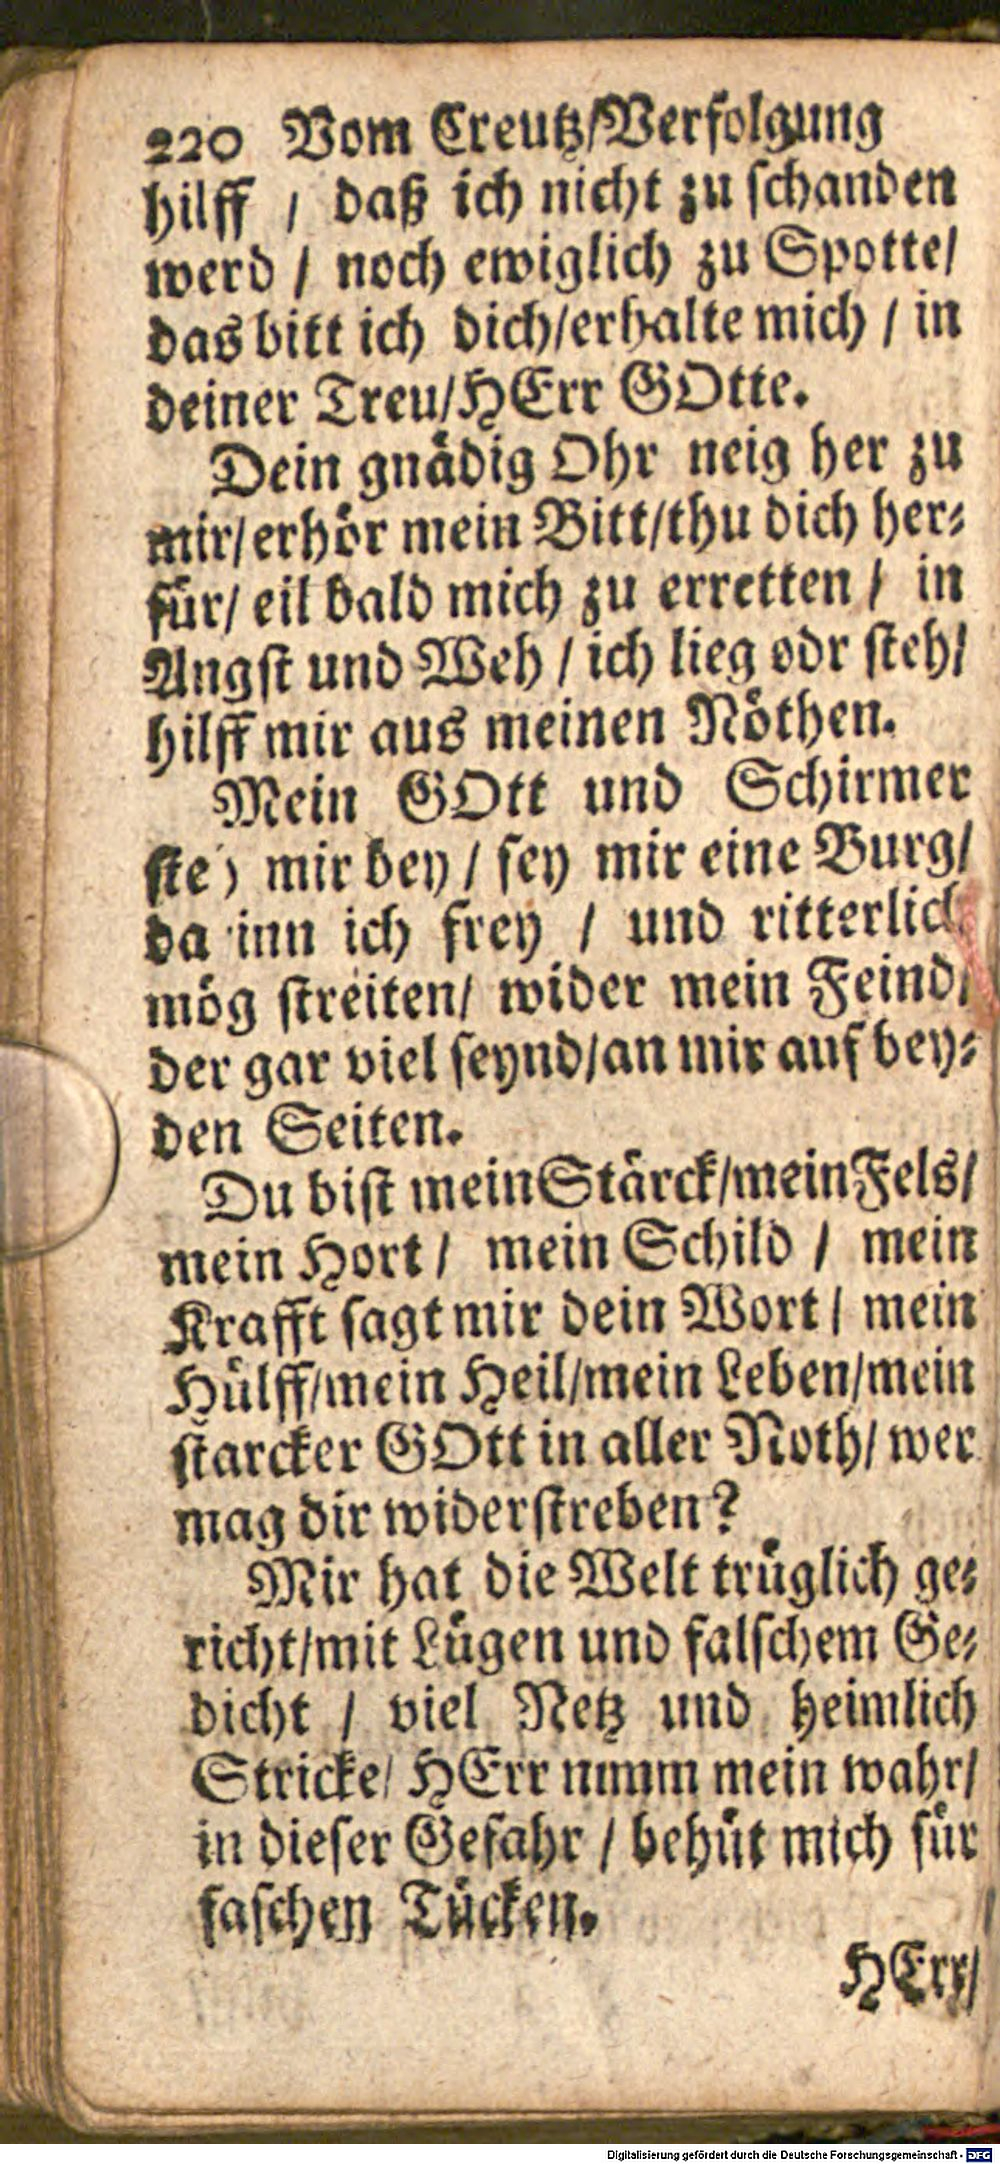 220 Vom Creutz/Verfolgung
hilff / daß ich nicht zu schanden
werd / noch ewiglich zu Spotte/
das bitt ich dich/erhalte mich / in
deiner Treu/HErr GOtte.
Dein gnädig Ohr neig her zu
mir/erhör mein Bitt/thu dich her-
für/ eil bald mich zu erretten / in
Angst und Weh / ich lieg odr steh/
hilff mir aus meinen Nöthen.
Mein GOtt und Schirmer
steh mir bey / sey mir eine Burg/
da inn ich frey / und ritterlich
mög streiten/ wider mein Feind/
der gar viel seynd/an mir auf bey-
den Seiten.
Du bist mein Stärck/mein Fels/
mein Hort / mein Schild / mein
Krafft sagt mir dein Wort / mein
Hülff/mein Heil/mein Leben/mein
starcker GOtt in aller Noth/ wer
mag dir widerstreben?
Mir hat die Welt trüglich ge-
richt/mit Lügen und falschem Ge-
dicht / viel Netz und heimlich
Stricke/ HErr nimm mein wahr/
in dieser Gefahr / behüt mich für
faschen Tücken.
HErr/
Digitalisierung gefördert durch die Deutsche Forschungsgemeinschaft - DFG